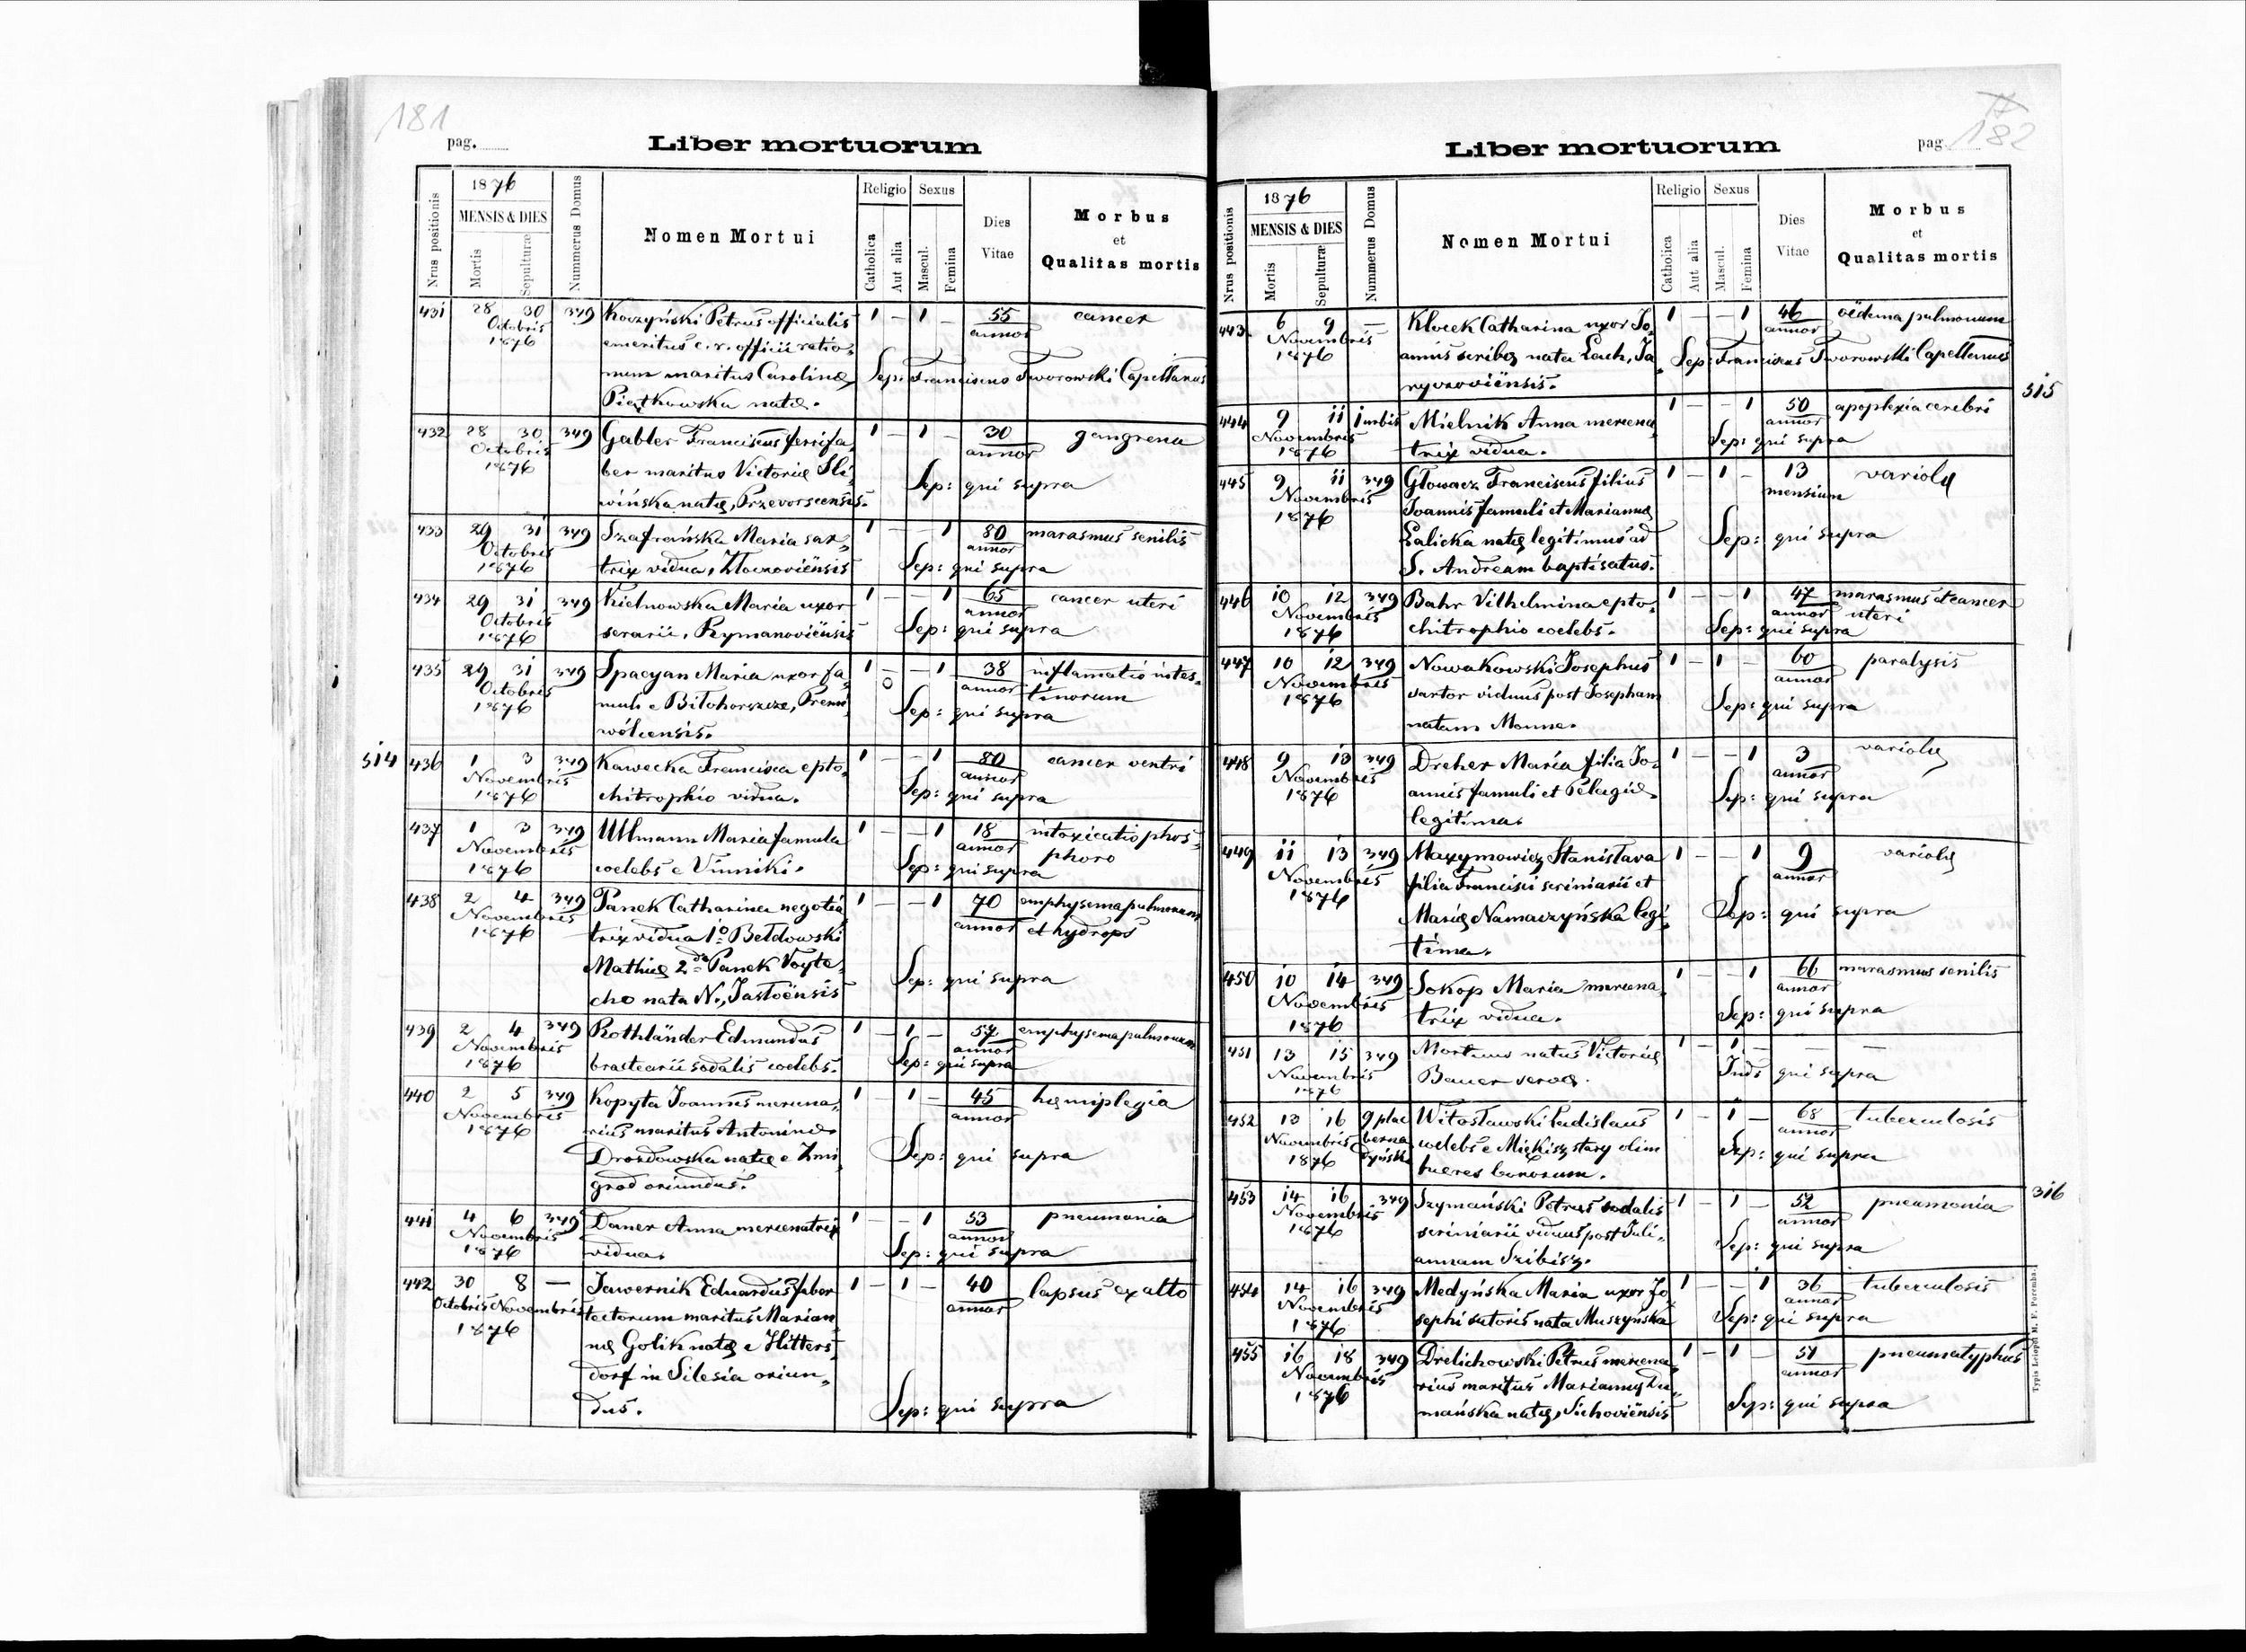 181
pag.
Liber mortuorum
Nrus positionis
1876
MENSIS & DIES
Mortis
Sepulturæ
Nummerus Domus
Nomen Mortui
Religio
Catholica
Aut alia
Sexus
Mascul.
Femina
Dies
Vitae
Morbus
et
Qualitas mortis
431 28 30 349 Koczyński Petrus officialis 1 - 1 - 55 cancer
Octobris emeritus c.r. officii ratio- annor
1876 num maritus Carolinæ Sep: Franciscus Tworowski Capellanus
Piątkowska natæ.
432 28 30 349 Gabler Franciscus ferrifa- 1 - 1 - 30 gangrena
Octobris ber maritus Victoriæ Sli- annor
1876 wińska natæ, Przevorscensis. Sep: qui supra
433 29 31 349 Szafrańska Maria sar- 1 - - 1 80 marasmus senilis
Octobris trix vidua, Złoczoviënsis annor
1876 Sep: qui supra
434 29 31 349 Kielnowska Maria uxor 1 - - 1 65 cancer uteri
Octobris serarii, Rymanoviënsis annor
1876 Sep: qui supra
435 29 31 349 Spacyan Maria uxor fa- 1 - - 1 38 inflamatio intes-
Octobris muli e Biłohorszcze, Trem- 0 annor tinorum
1876 wólcensis. Sep: qui supra
514 436 1 3 349 Kawecka Francisca epto- 1 - - 1 80 cancer ventri
Novembris chitrophio vidua. annor
1876 Sep: qui supra
437 1 3 349 Ullmann Maria famula 1 - - 1 18 intoxicatio phos-
Novembris coelebs e Vinniki. annor phoro
1876 Sep: qui supra
438 2 4 349 Panek Catharina negotia- 1 - - 1 70 emphysema pulmonum
Novembris trix vidua 1º Bełdowski annor et hydrops
1876 Mathiæ 2do Panek Voyte-
cho nata N., Jasłoënsis Sep: qui supra
439 2 4 349 Rothländer Edmundus 1 - 1 - 57 emphysema pulmonum
Novembris bractearii sodalis coelebs. annor
1876 Sep: qui supra
440 2 5 349 Kopyta Joannes mercena- 1 - 1 - 45 hæmiplegia
Novembris rius maritus Antoninæ annor
1876 Drozdowska natæ e Zmi- Sep: qui supra
grod oriundus.
441 4 6 349 Daner Anna mercenatrix 1 - - 1 53 pneumonia
Novembris vidua. annor
1876 Sep: qui supra
442 30 8 — Jawernik Eduardus faber 1 - 1 - 40 lapsus ex alto
Octobris Novembris tectorum maritus Marian- annor
1876 næ Golik natæ e Hitters-
dorf in Silesia oriun-
dus. Sep: qui supra
182
pag.
Liber mortuorum
Nrus positionis
1876
MENSIS & DIES
Mortis
Sepulturæ
Nummerus Domus
Nomen Mortui
Religio
Catholica
Aut alia
Sexus
Mascul.
Femina
Dies
Vitae
Morbus
et
Qualitas mortis
443 6 9 — Klocek Catharina uxor Jo- 1 - - 1 46 oëdema pulmonum
Novembris annis scribæ nata Lach, Ja- annor
1876 ryvoroviënsis. Sep: Franciscus Tworowski Capellanus
515
444 9 11 in urbis Mielnik Anna mercena- 1 - - 1 50 apoplexia cerebri
Novembris trix vidua. annor
1876 Sep: qui supra
445 9 11 349 Głowacz Franciscus filius 1 - 1 - 13 variolæ
Novembris Joannis famuli et Mariannæ mensium
1876 Łalicka natæ legitimus ad Sep: qui supra
S. Andream baptisatus.
446 10 12 349 Bahr Vilhelmina epto- 1 - - 1 47 marasmus et cancer
Novembris chitrophio coelebs. annor uteri
1876 Sep: qui supra
447 10 12 349 Nowakowski Josephus 1 - 1 - 60 paralysis
Novembris sartor viduus post Josepham annor
1876 natam Monne. Sep: qui supra
448 9 13 349 Dreher Maria filia Jo- 1 - - 1 3 variolæ
Novembris annis famuli et Pelagiæ annor
1876 legitima. Sep: qui supra
449 11 13 349 Maxymowicz Stanisłava 1 - - 1 9 variolæ
Novembris filia Francisci scriniarii et annor
1876 Mariæ Namaczyńska legi- Sep: qui supra
tima.
450 10 14 349 Sokop Maria mercena- 1 - - 1 66 marasmus senilis
Novembris trix vidua. annor
1876 Sep: qui supra
451 13 15 349 Mortuus natus Victoriæ 1 - 1 - — —
Novembris Bauer servæ. Inds qui supra
1876
452 13 16 9 plac Witosławski Ladislaus 1 - 1 - 68 tuberculosis
Novembris berna coelebs e Miękisz stary olim annor
1876 dyński hæres bonorum. Sep: qui supra
453 14 16 349 Szymański Petrus sodalis 1 - 1 - 52 pneumonia 316
Novembris scriniarii viduus post Juli- annor
1876 annam Szibisz. Sep: qui supra
454 14 16 349 Medyńska Maria uxor Jo- 1 - - 1 36 tuberculosis
Novembris sephi sutoris nata Muszyńska annor
1876 Sep: qui supra
455 16 18 349 Drelichowski Petrus mercena- 1 - 1 - 51 pneumatyphus
Novembris rius maritus Mariannæ Du- annor
1876 mańska natæ, Sichoviënsis Sep: qui supra
Typis Leiopol M. F. Poremba.